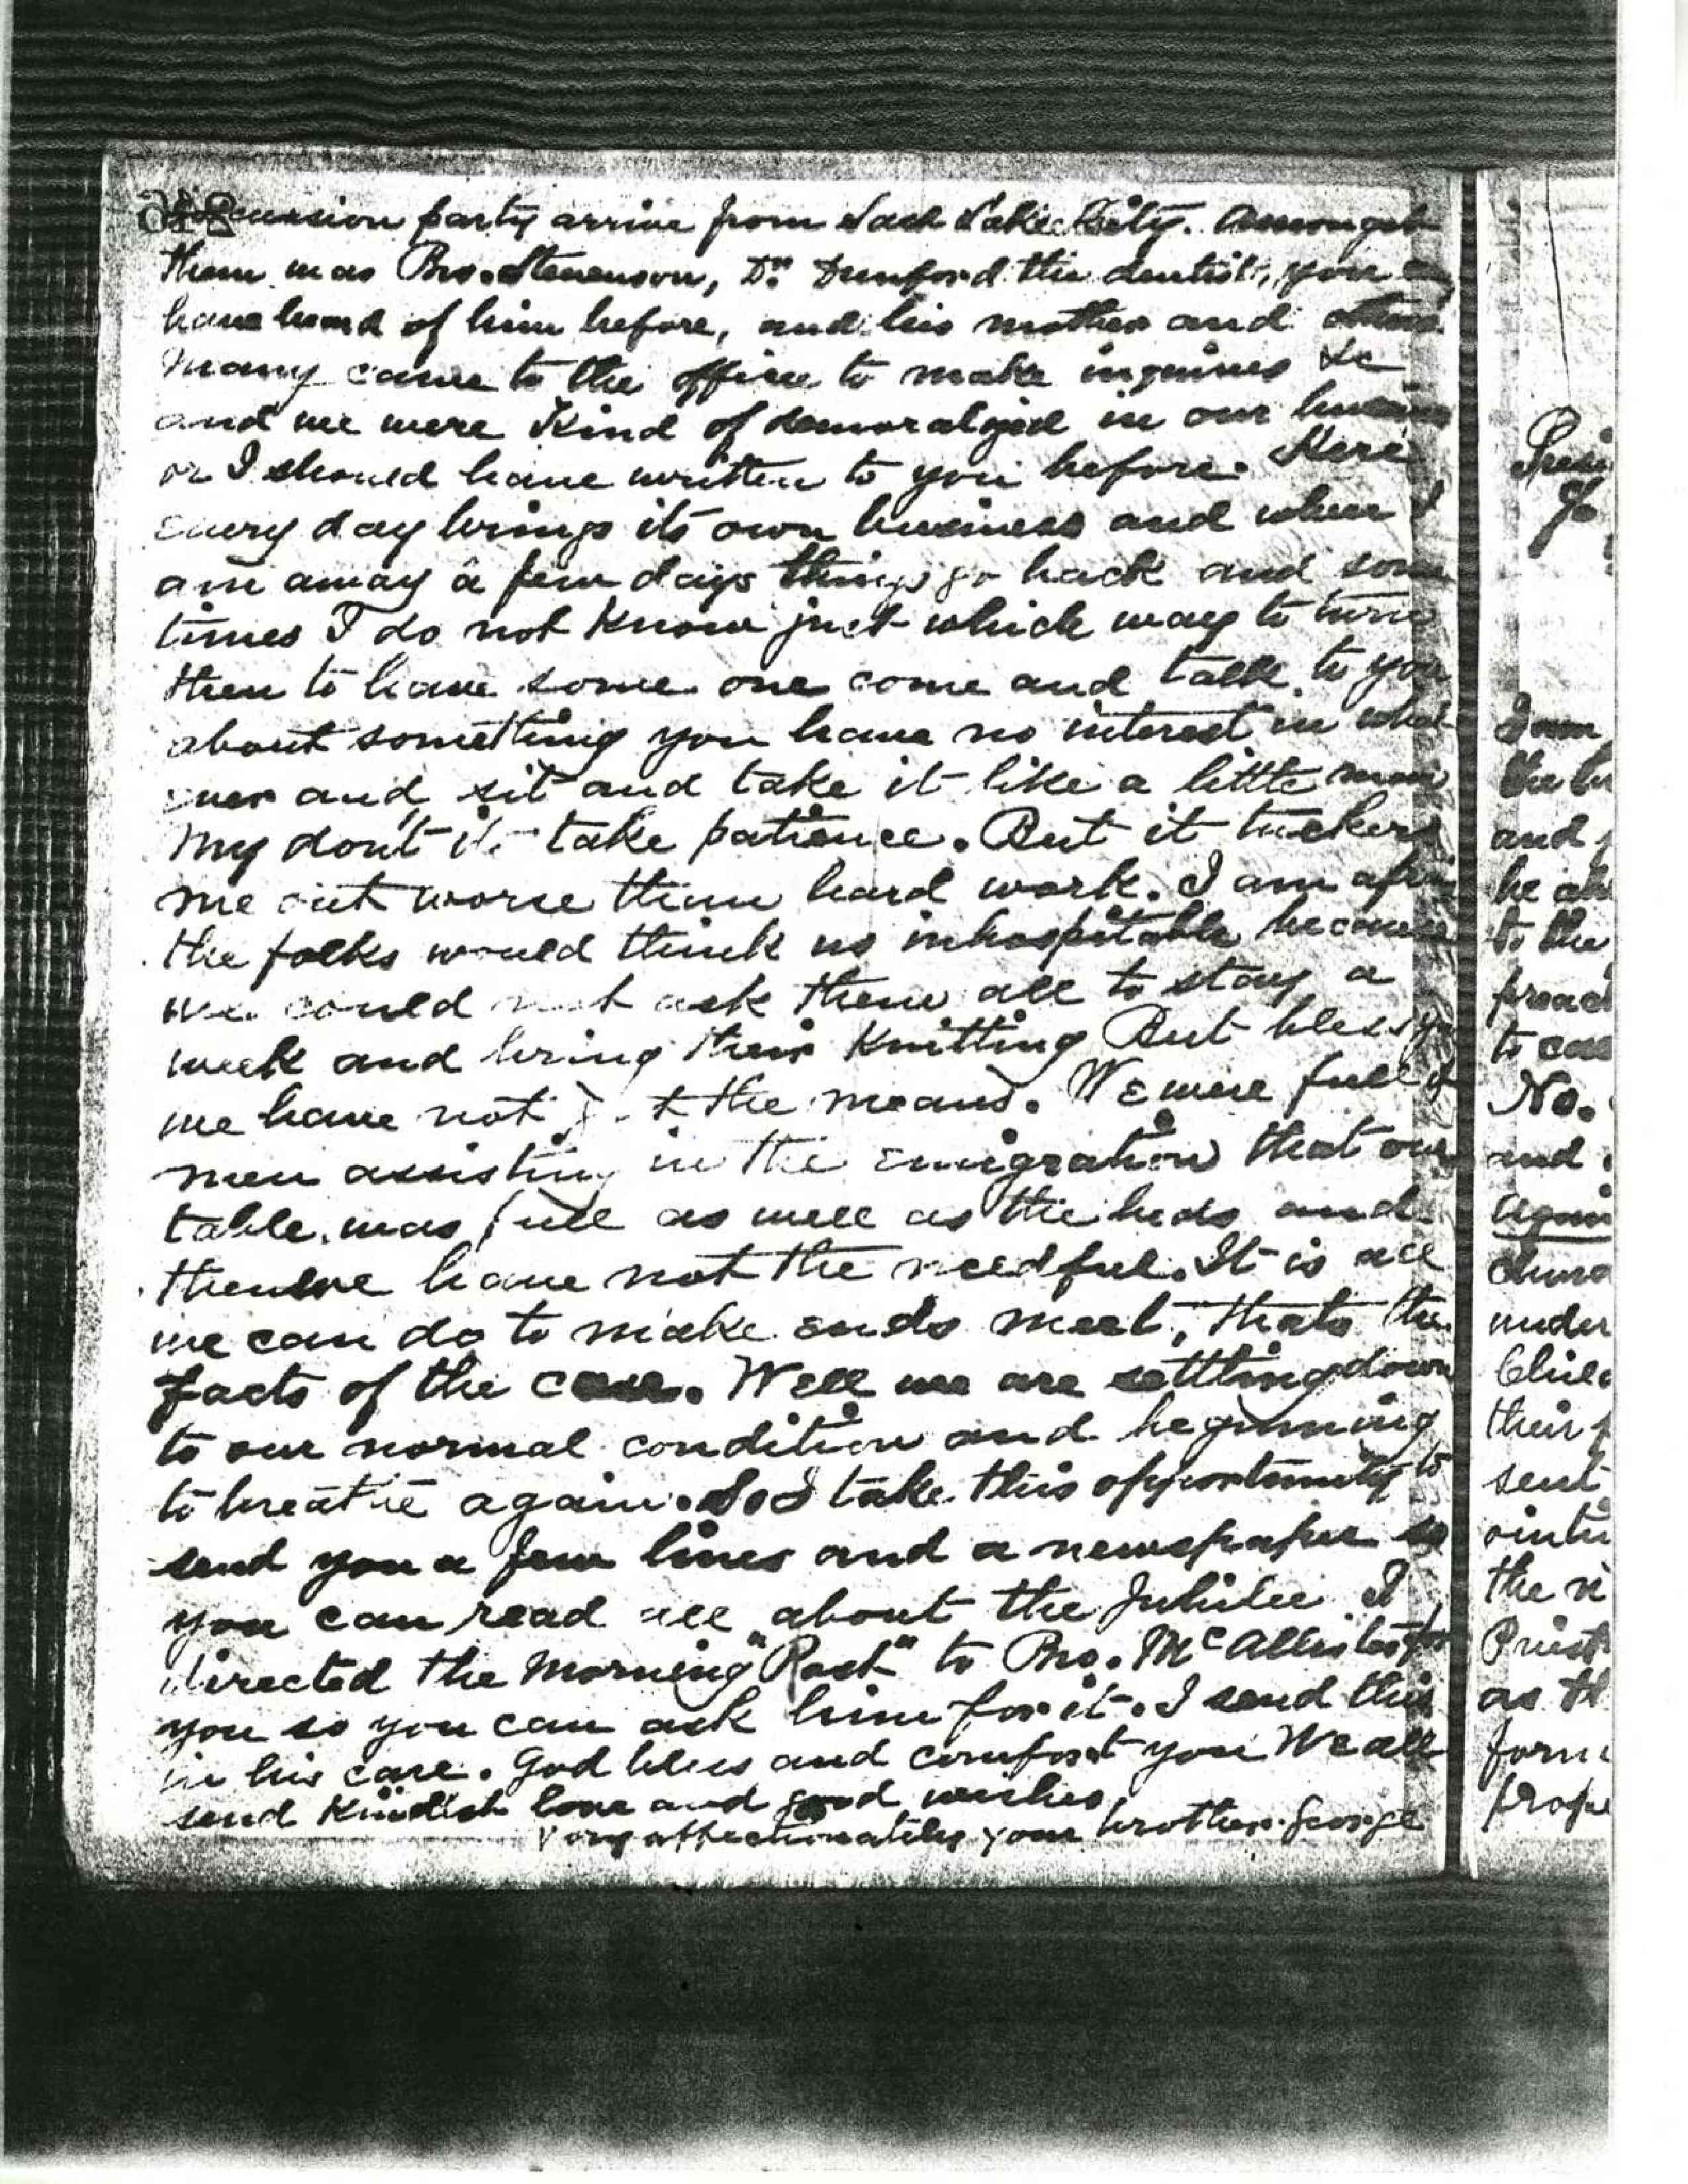 excursion party arrive from Salt Lake City. Amongst
them was Bro. Stevenson, Dr. Dunford the dentist, you
have heard of him before, and his mother and others
many came to the office to make inquiries &c
and we were kind of demoralized in our business
or I should have written to you before. Here
every day brings its own business and when I
am away a few days things go back and some
times I do not know just which way to turn
then to have some one come and talk to you
about something you have no interest in what
ever and sit and take it like a little man
My dont it take patience. But it tuckers
me out worse than hard work. I am afraid
the folks would think us inhospitable because
we could not ask them all to stay a
week and bring their knitting But bless you
we have not got the means. We were full of
men assisting in the emigration that our
table was full as well as the beds and
then we have not the needful. It is all
we can do to make ends meet, thats the
facts of the case. Well we are settling down
to our normal condition and beginning
to breathe again. So I take this opportunity to
send you a few lines and a newspaper so
you can read all about the Jubilee I
directed the Morning "Post" to Bro. McAllister for
you so you can ask him for it. I send this
in his care. God bless and comfort you We all
send kindest love and good wishes
Very affectionately your brother George
and
he
to the
No.
and
again
under
their
sent
the
Priest
as